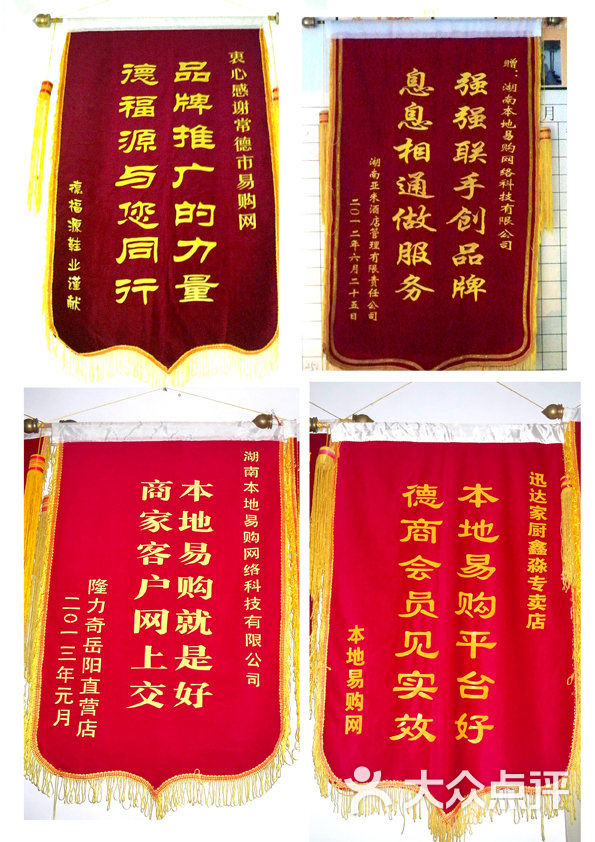 衷心感谢常德市易购网
品牌推广的力量
德福源与您同行
德福源鞋业谨献
赠：湖南本地易购网络科技有限公司
强强联手创品牌
息息相通做服务
湖南亚朱酒店管理有限责任公司
二〇一二年六月二十五日
湖南本地易购网络科技有限公司
本地易购就是好
商家客户网上交
隆力奇岳阳直营店
二〇一三年元月
迅达家厨鑫淼专卖店
本地易购平台好
德商会员见实效
本地易购网
大众点评